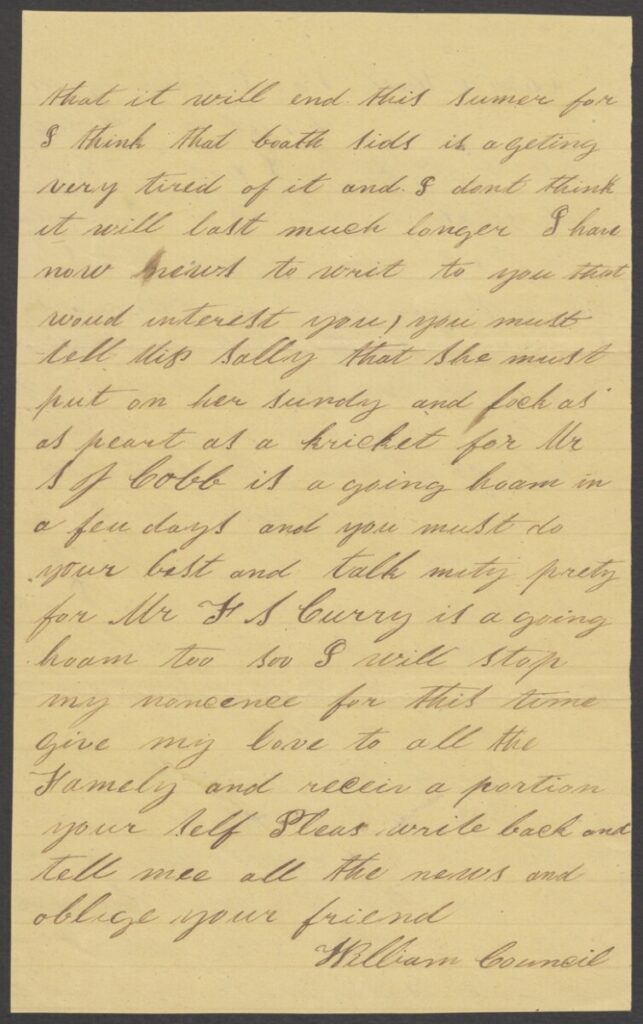 that it will end this sumer for
I think that boath sids is a geting
very tired of it and I dont think
it will last much longer I have
now news to writ to you that
woud interest you, you must
tell Miss Sally that she must
put on her sundy and look as
as peart as a kricket for Mr
S J Cobb is a going hoam in
a few days and you must do
your best and talk mity prety
for Mr F S Curry is a going
hoam too soo I will stop
my noncence for this time
give my love to all the
Famely and receiv a portion
your self Pleas write back and
tell mee all the news and
oblige your friend
William Council